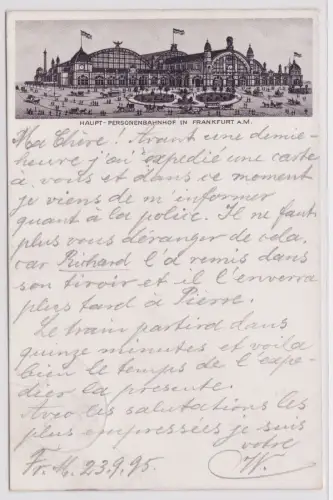 HAUPT-PERSONENBAHNHOF IN FRANKFURT A.M.
Ma Chère! Avant une demie-
heure j'ai expedié une carte
à vous et dans ce moment
je viens de m'informer
quant à la police. Il ne faut
plus vous déranger de cela,
car Richard l'a remis dans
son tiroir et il l'enverra
plus tard à Pierre.
Le train partira dans
quinze minutes et voilà
bien le temps de l'expe-
dier la presente.
Avec les salutations les
plus empressées je suis
votre
Fr. M. 23.9.95. W.